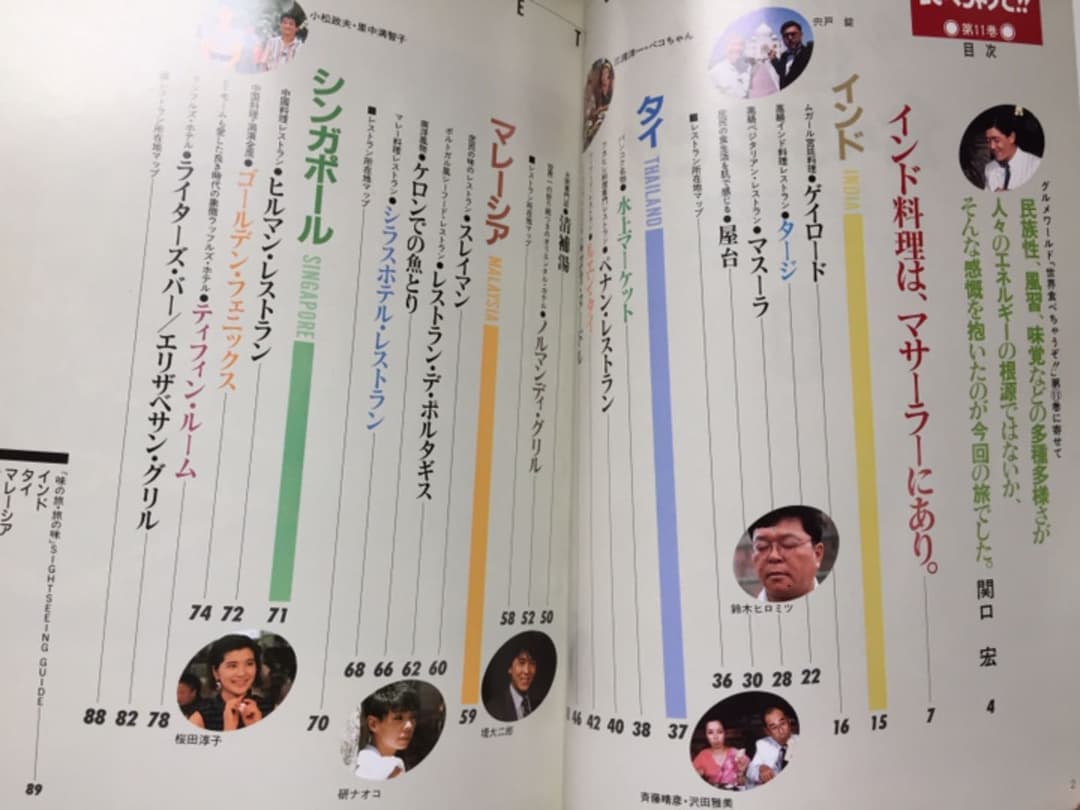 第11巻
目次
グルメワールド「世界食べちゃうぞ!!」第⑪巻に寄せて
民族性、風習、味覚などの多種多様さが
人々のエネルギーの根源ではないか、
そんな感慨を抱いたのが今回の旅でした。
関口 宏
4
インド料理は、マサーラーにあり。
7
インド INDIA
15
16
ムガール宮廷料理●ゲイロード
22
高級インド料理レストラン●タージ
28
高級ベジタリアン・レストラン●マスーラ
30
庶民の食生活を肌で感じる●屋台
36
■レストラン所在地マップ
宍戸 錠
鈴木ヒロミツ
斉藤晴彦・沢田雅美
タイ THAILAND
37
38
水上マーケット
40
ペナン・レストラン
42
46
清補湯
50
ノルマンディ・グリル
52
■レストラン所在地マップ
58
堤大二郎
マレーシア MALAYSIA
59
庶民の味のレストラン●スレイマン
60
ポルトガル風シーフード・レストラン●レストラン・デ・ポルタギス
62
南洋風物●ケロンでの魚とり
66
マレー料理レストラン●シラスホテル・レストラン
68
■レストラン所在地マップ
70
研ナオコ
小松政夫・里中満智子
シンガポール SINGAPORE
71
中国料理レストラン●ヒルマン・レストラン
72
中国料理・満漢全席●ゴールデン・フェニックス
74
ティフィン・ルーム
78
ラッフルズ・ホテル●ライターズ・バー/エリザベサン・グリル
82
■レストラン所在地マップ
88
桜田淳子
「味の旅・旅の味」SIGHTSEEING GUIDE
インド
タイ
マレーシア
89
2